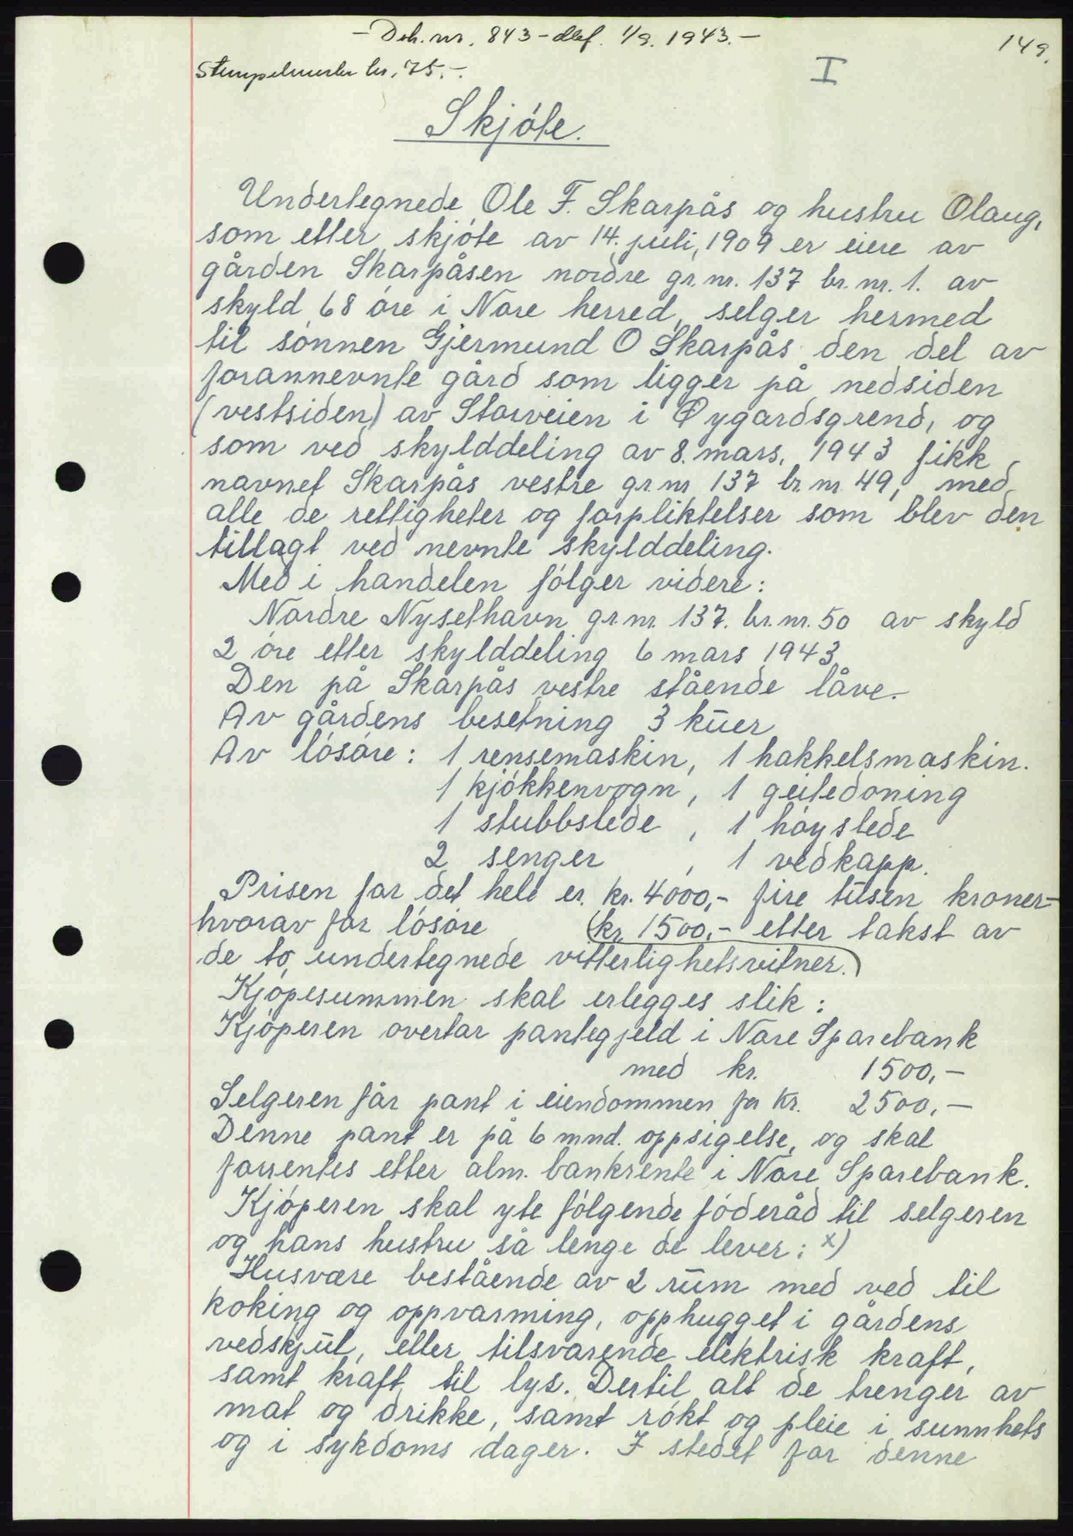 - Deb. nr. 843 - dbf. 1/9. 1943. -
149.
Stempelmerker kr. 75.-.
I
Skjöte.
Undertegnede Ole F. Skarpås og hustru Olaug,
som etter skjöte av 14. juli, 1909 er eiere av
gården Skarpåsen nordre gr. nr. 137 br. nr. 1. av
skyld 68 öre i Nore herred, selger hermed
til sönnen Gjermund O Skarpås den del av
forannevnte gård som ligger på nedsiden
(vestsiden) av Storveien i Öygardsgrend, og
som ved skylddeling av 8. mars, 1943 fikk
navnet Skarpås vestre gr nr 137 br nr 49, med
alle de rettigheter og forpliktelser som blev den
tillagt ved nevnte skylddeling.
Med i handelen fölger videre:
Nordre Nysethavn gr nr. 137. br. nr. 50 av skyld
2 öre etter skylddeling 6 mars 1943
Den på Skarpås vestre stående låve.-
Av gårdens besetning 3 kuer
Av lösöre: 1 rensemaskin, 1 hakkelsmaskin.
1 kjökkenvogn, 1 geitedoning
1 stubbslede, 1 höyslede
2 senger, 1 vedkapp.
Prisen for det hele er kr. 4000,- fire tusen kroner-
hvorav for lösöre (kr. 1500,- etter takst av
de to undertegnede vitterlighetsvitner.)
Kjöpesummen skal erlegges slik:
Kjöperen overtar pantegjeld i Nore Sparebank
med kr. 1500,-
Selgeren får pant i eiendommen for kr. 2500,-
Denne pant er på 6 mnd. oppsigelse, og skal
forrentes etter alm. bankrente i Nore Sparebank.
Kjöperen skal yte fölgende föderåd til selgeren
og hans hustru så lenge de lever: x)
Husvære bestående av 2 rum med ved til
koking og oppvarming, opphugget i gårdens
vedskjul, eller tilsvarende elektrisk kraft,
samt kraft til lys. Dertil alt de trenger av
mat og drikke, samt rökt og pleie i sunnhets
og i sykdoms dager. I stedet for denne